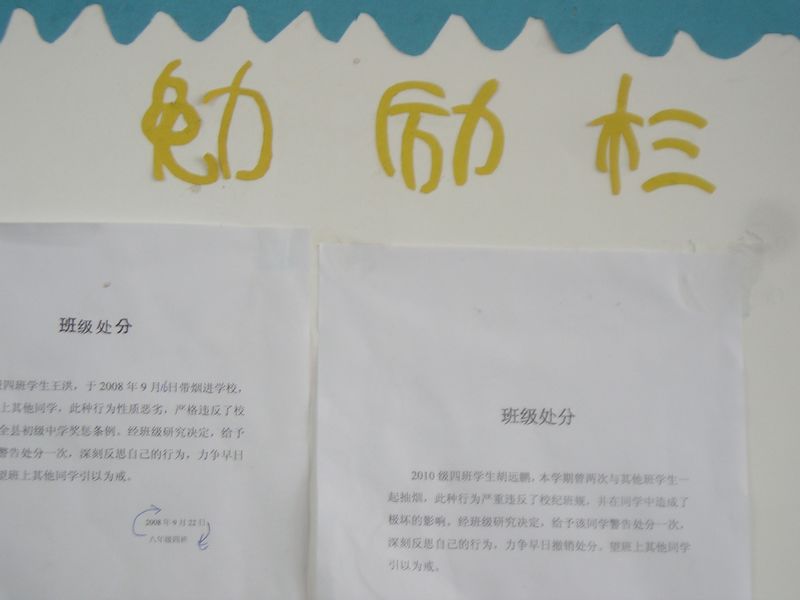 勉励栏
班级处分
四班学生王洪，于2008年9月6日带烟进学校，
上其他同学，此种行为性质恶劣，严格违反了校
全县初级中学奖惩条例。经班级研究决定，给予
警告处分一次，深刻反思自己的行为，力争早日
望班上其他同学引以为戒。
2008年9月22日
八年级四班
班级处分
2010级四班学生胡远鹏，本学期曾两次与其他班学生一
起抽烟，此种行为严重违反了校纪班规，并在同学中造成了
极坏的影响。经班级研究决定，给予该同学警告处分一次，
深刻反思自己的行为，力争早日撤销处分。望班上其他同学
引以为戒。